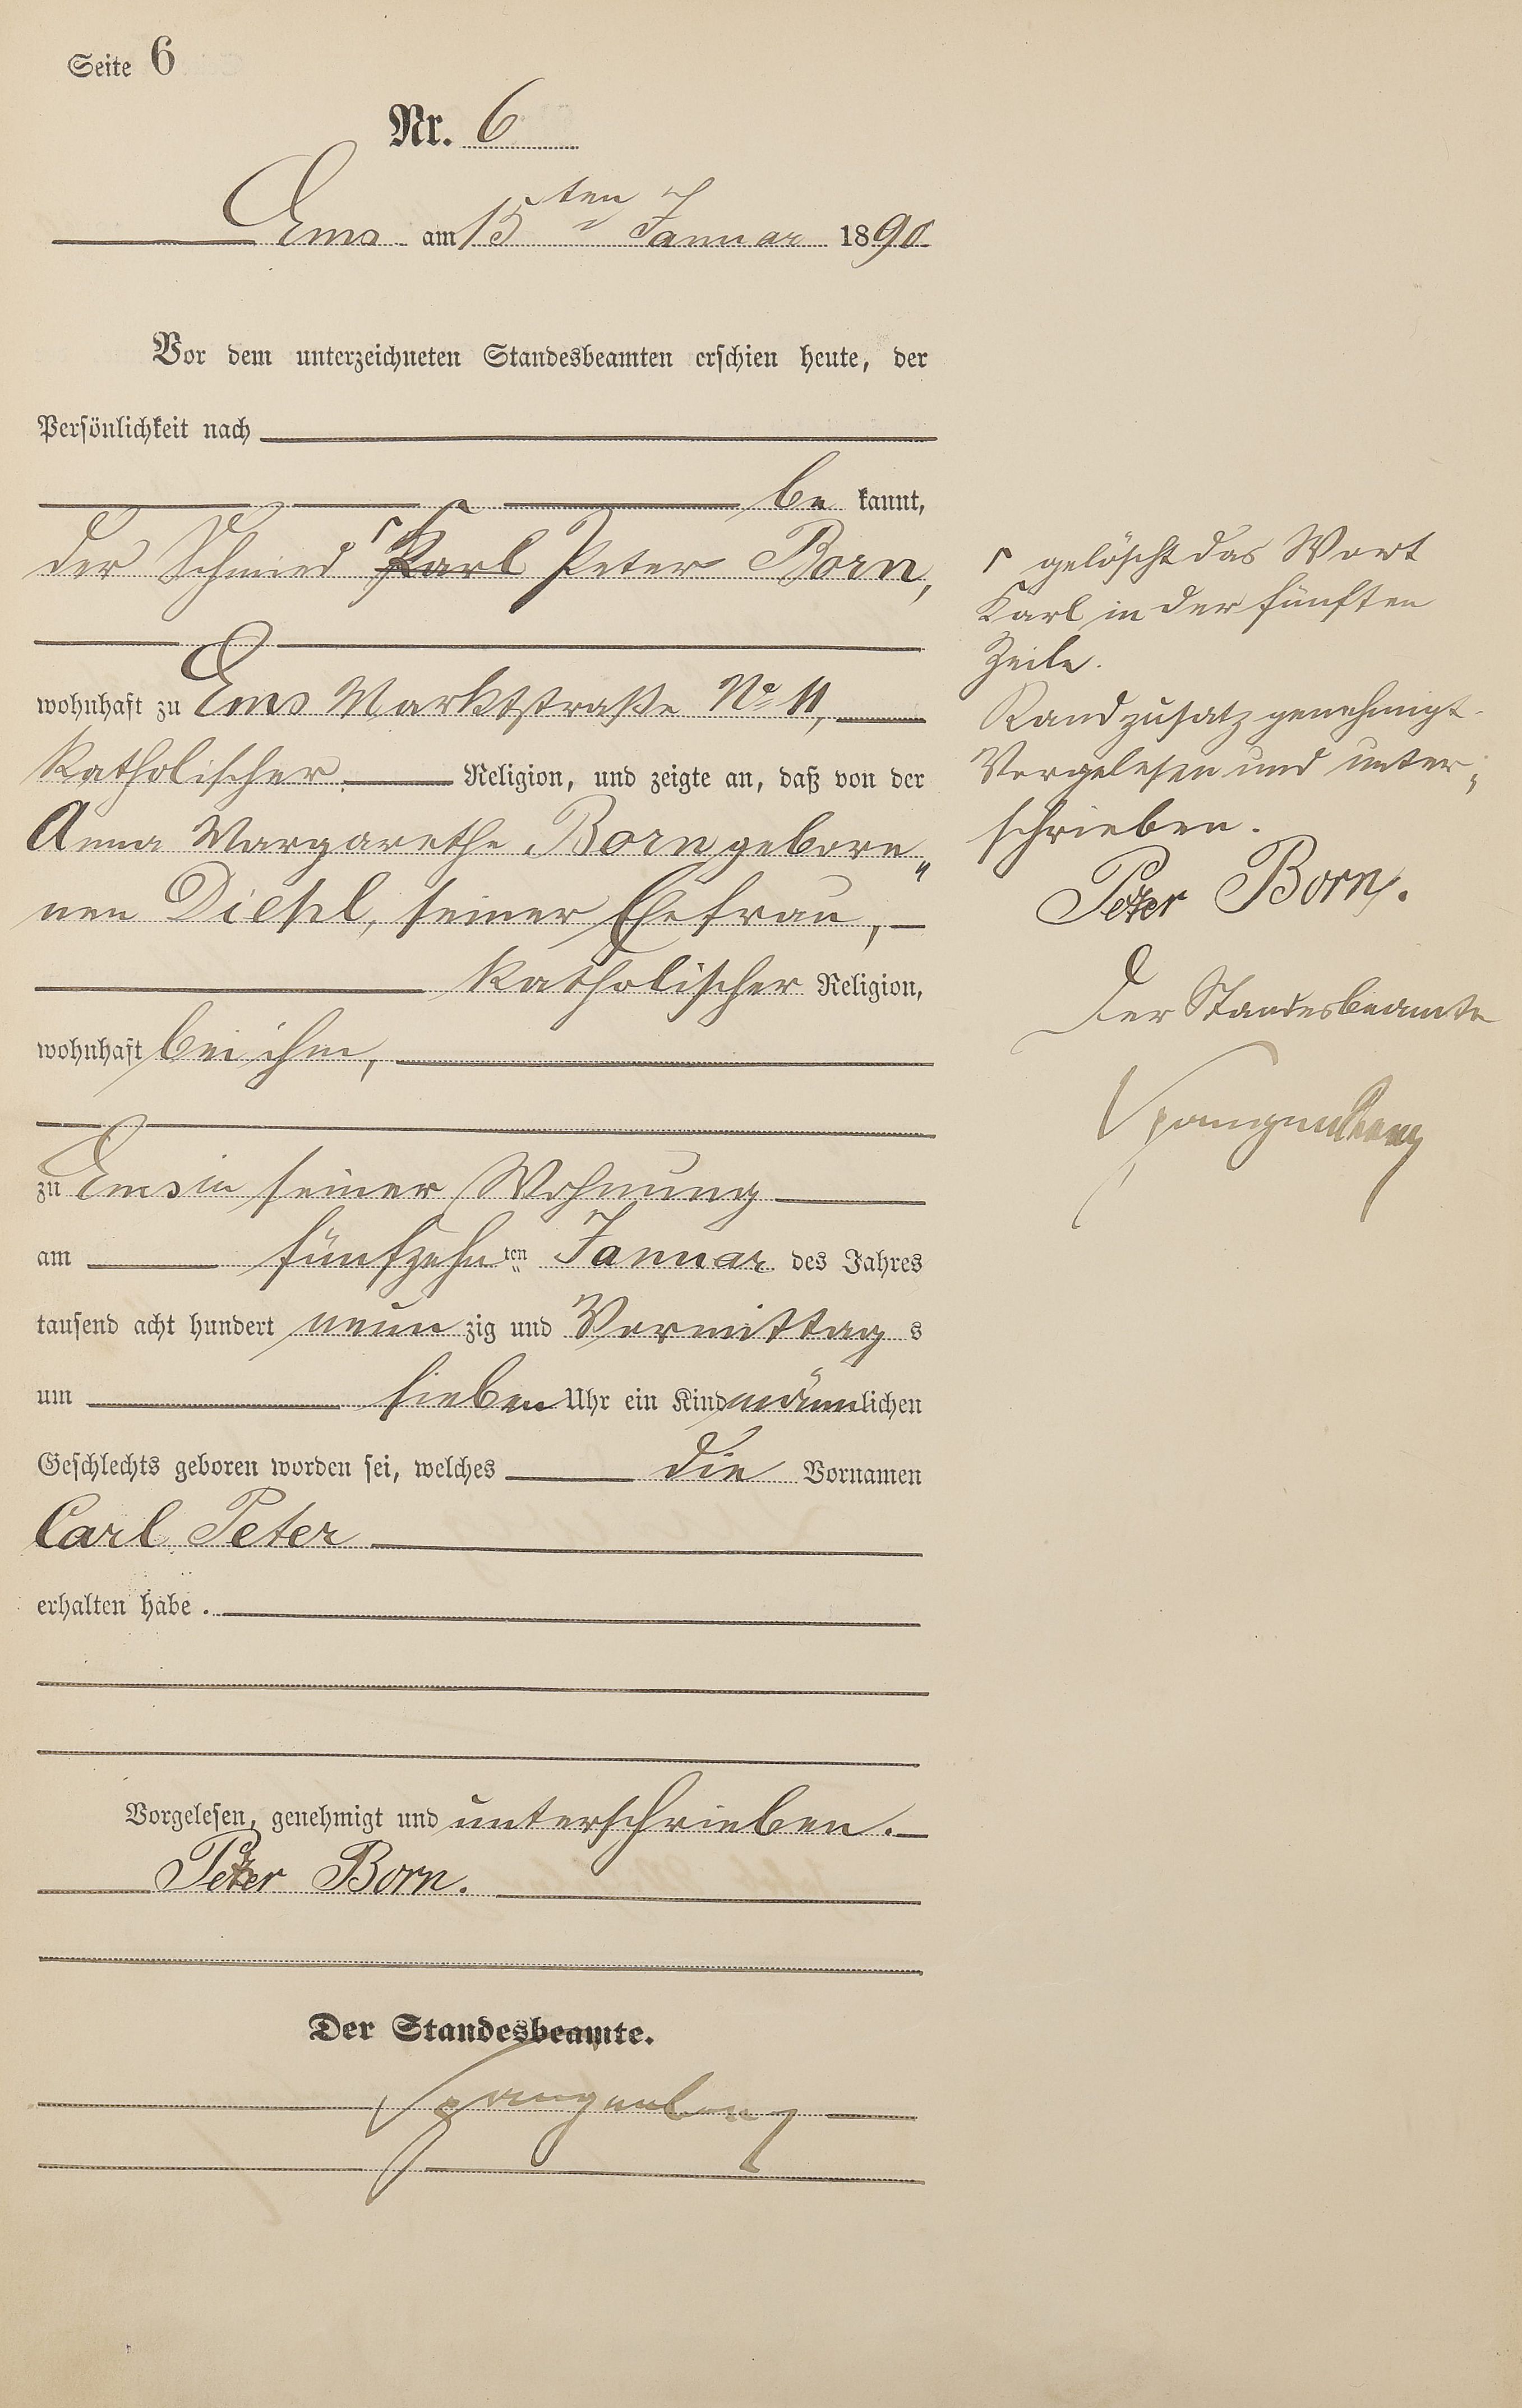 Seite 6
Nr. 6
Ems am 15ten Januar 1890
Vor dem unterzeichneten Standesbeamten erschien heute, der
Persönlichkeit nach
be kannt,
der Schmied ┌ Karl Peter Born,
wohnhaft zu Ems Marktstraße No 11,
katholischer Religion, und zeigte an, daß von der
Anna Margarethe Born gebore„
nen Diesel, seiner Ehefrau,
katholischer Religion,
wohnhaft bei ihm,
zu Ems in seiner Wohnung
am fünfzehn ten Januar des Jahres
tausend acht hundert neun zig und Vormittag s
um sieben Uhr ein Kind männlichen
Geschlechts geboren worden sei, welches die Vornamen
Carl Peter
erhalten habe.
Vorgelesen, genehmigt und unterschrieben.
Peter Born.
Der Standesbeamte.
Spangenberg
┌ gelöscht das Wort
Karl in der fünften
Zeile.
Randzusatz genehmigt.
Vorgelesen und unter„
schrieben.
Peter Born.
Der Standesbeamte
Spangenberg